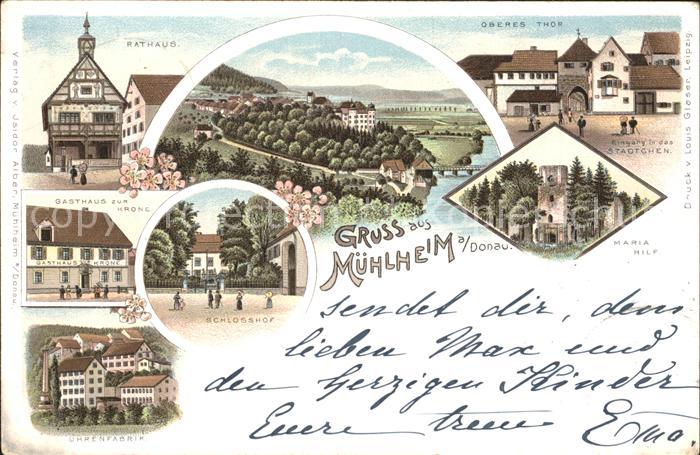 RATHAUS.
OBERES THOR
Eingang in das
STÄDTCHEN.
GASTHAUS ZUR
KRONE
GASTHAUS Z. KRONE
MARIA
HILF.
SCHLOSSHOF
UHRENFABRIK
GRUSS aus
MÜHLHEIM a/Donau.
sendet dir, dem
lieben Max und
den herzigen Kinder
Eure treue Ema.
Verlag v. Isidor Alber, Mühlheim a/Donau
Druck v. Louis Glaser, Leipzig.